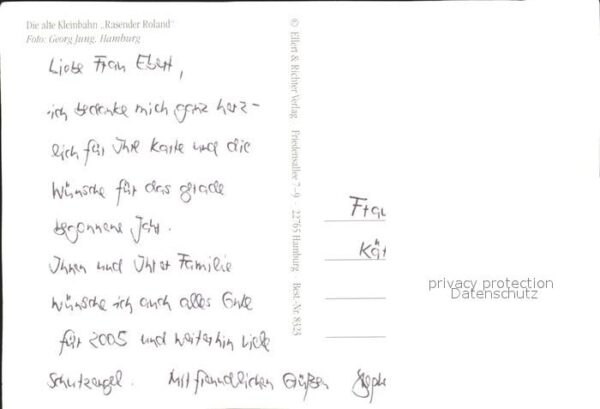 Die alte Kleinbahn „Rasender Roland“
Foto: Georg Jung, Hamburg
Liebe Frau Ebert,
ich bedanke mich ganz herz-
lich für Ihre Karte und die
Wünsche für das gerade
begonnene Jahr.
Ihnen und Ihrer Familie
wünsche ich auch alles Gute
für 2005 und weiterhin viele
Schutzengel. Mit freundlichen Grüßen
© Ellert & Richter Verlag Friedensallee 7–9 · 22765 Hamburg · Best.-Nr. 8323
Frau
Kät
privacy protection
Datenschutz